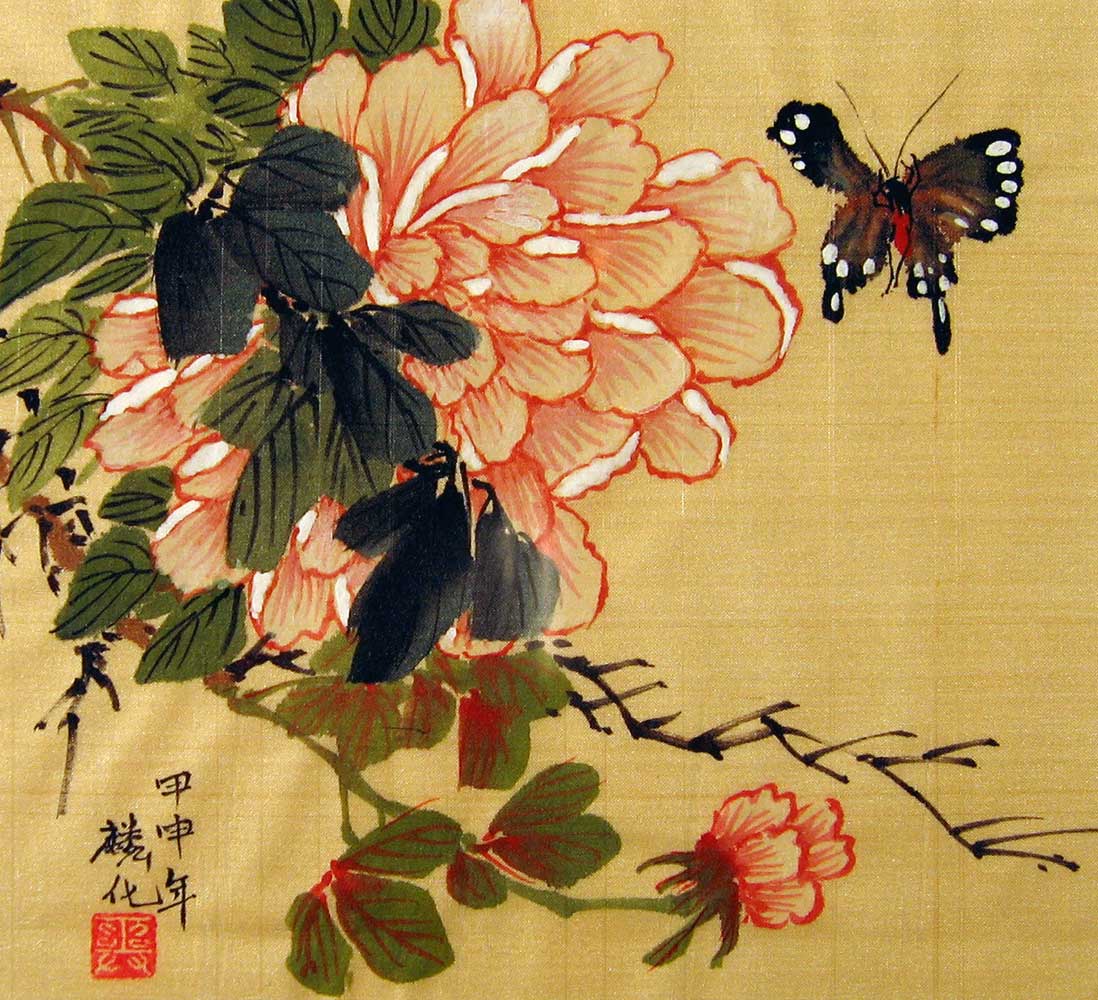 甲申年
麟化